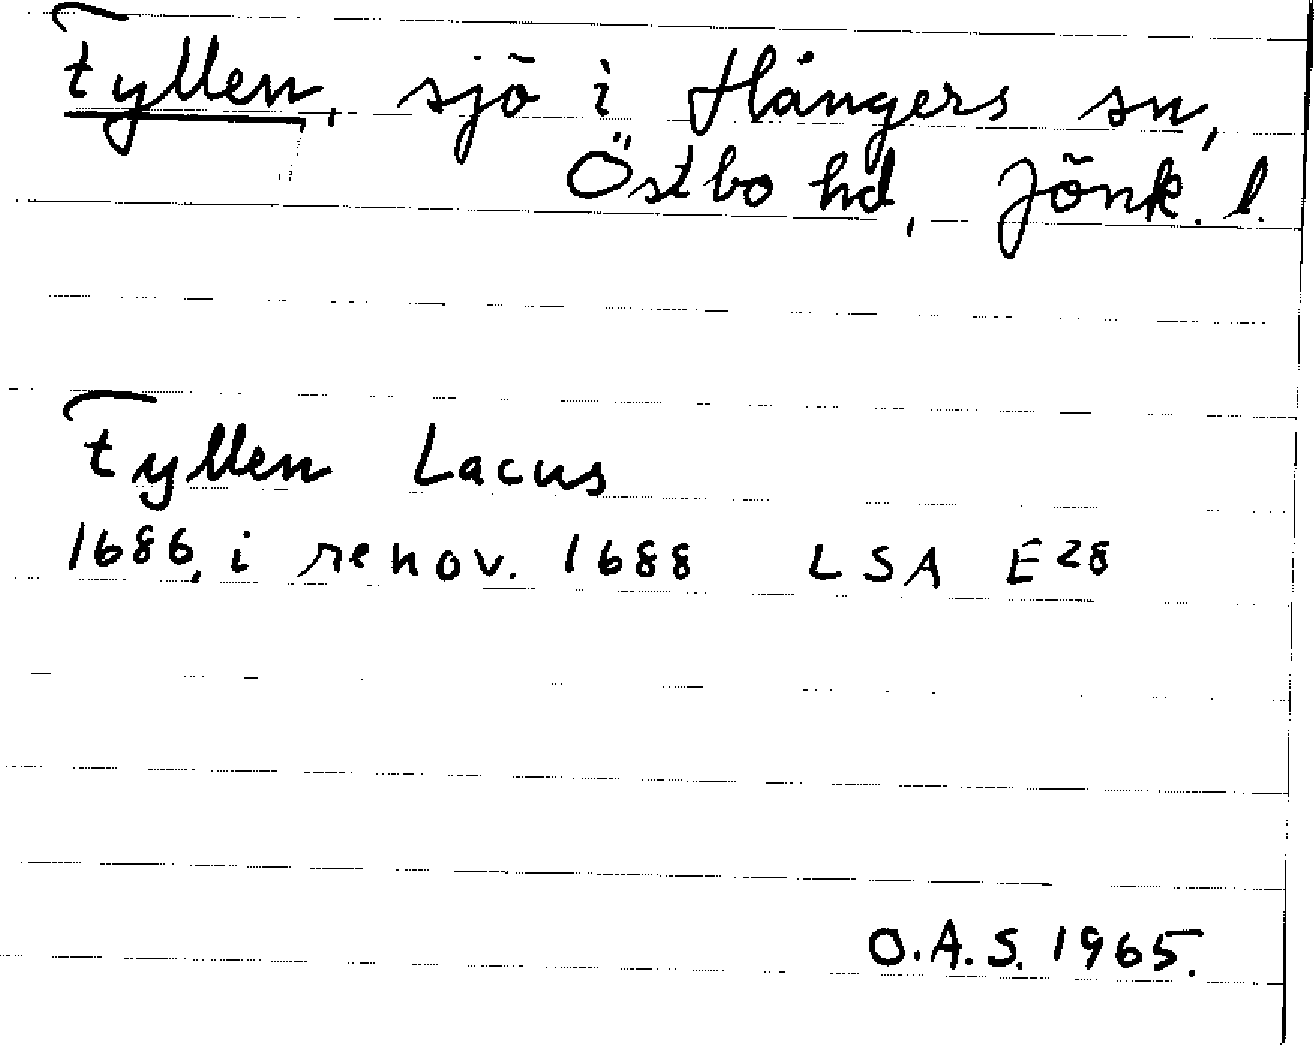 Fyllen, sjö i Hångers sn,
Östbo hd, Jönk. l.
Fyllen Lacus
1686, i renov. 1688 LSA E28
O.A.S. 1965.